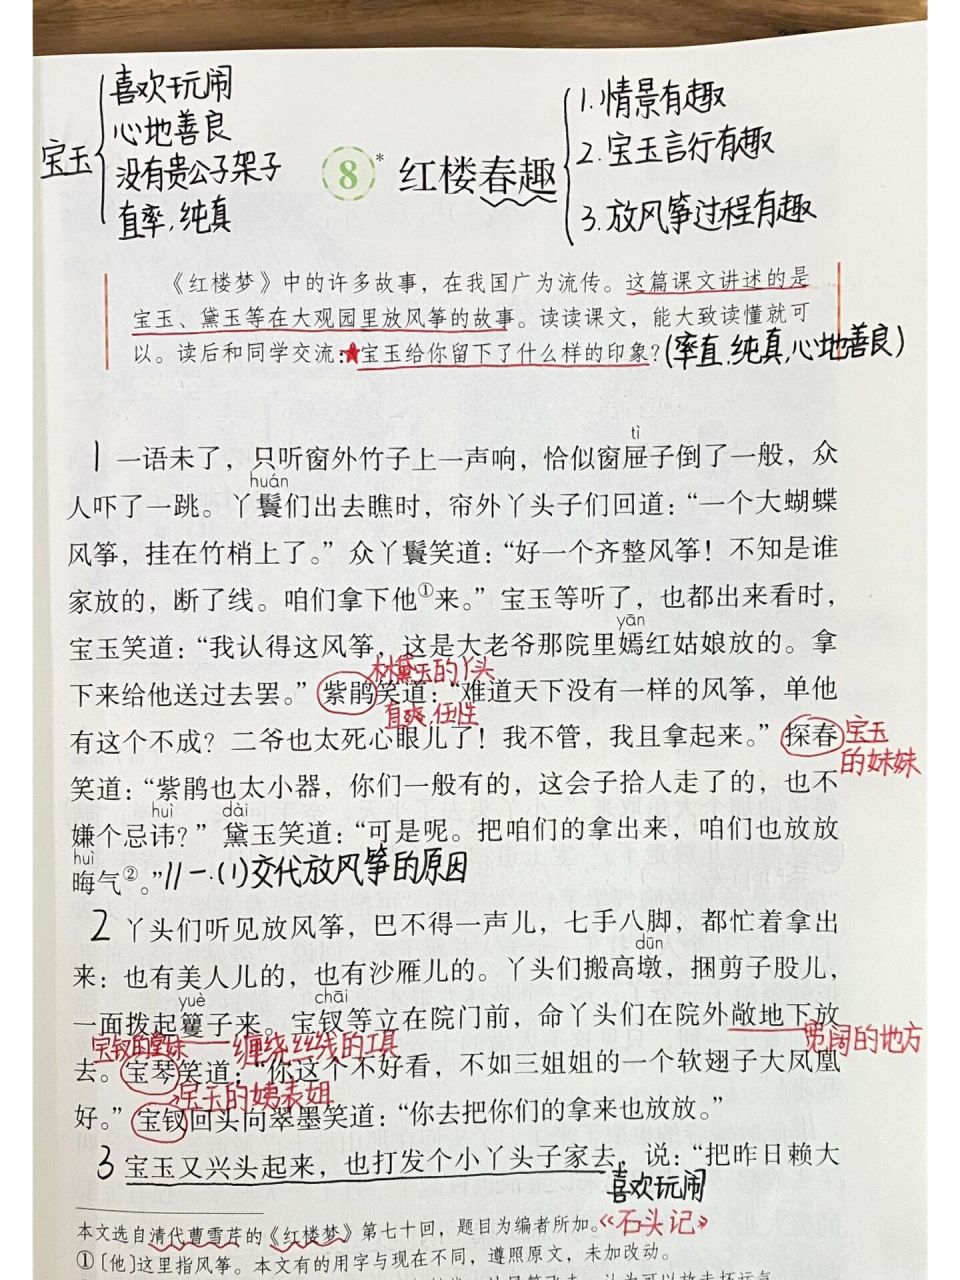 宝玉
喜欢玩闹
心地善良
没有贵公子架子
直率,纯真
8* 红楼春趣
1. 情景有趣
2. 宝玉言行有趣
3. 放风筝过程有趣
《红楼梦》中的许多故事，在我国广为流传。这篇课文讲述的是
宝玉、黛玉等在大观园里放风筝的故事。读读课文，能大致读懂就可
以。读后和同学交流：★宝玉给你留下了什么样的印象？(率直,纯真,心地善良)
tì
1 一语未了，只听窗外竹子上一声响，恰似窗屉子倒了一般，众
huán
人吓了一跳。丫鬟们出去瞧时，帘外丫头子们回道：“一个大蝴蝶
风筝，挂在竹梢上了。”众丫鬟笑道：“好一个齐整风筝！不知是谁
家放的，断了线。咱们拿下他①来。”宝玉等听了，也都出来看时，
yān
宝玉笑道：“我认得这风筝，这是大老爷那院里嫣红姑娘放的。拿
林黛玉的丫头
下来给他送过去罢。”紫鹃笑道：“难道天下没有一样的风筝，单他
直爽.任性
有这个不成？二爷也太死心眼儿了！我不管，我且拿起来。”探春
宝玉
的妹妹
笑道：“紫鹃也太小器，你们一般有的，这会子拾人走了的，也不
huì dài
嫌个忌讳？”黛玉笑道：“可是呢。把咱们的拿出来，咱们也放放
huì
晦气②。”//一.(1)交代放风筝的原因
2 丫头们听见放风筝，巴不得一声儿，七手八脚，都忙着拿出
dūn
来：也有美人儿的，也有沙雁儿的。丫头们搬高墩，捆剪子股儿，
yuè chāi
一面拨起籰子来。宝钗等立在院门前，命丫头们在院外敞地下放
宝钗的堂妹 缠绕丝线的工具 宽阔的地方
去。宝琴笑道：“你这个不好看，不如三姐姐的一个软翅子大凤凰
宝玉的姨表姐
好。”宝钗回头向翠墨笑道：“你去把你们的拿来也放放。”
3 宝玉又兴头起来，也打发个小丫头子家去，说：“把昨日赖大
喜欢玩闹
本文选自清代曹雪芹的《红楼梦》第七十回，题目为编者所加。《石头记》
①［他］这里指风筝。本文有的用字与现在不同，遵照原文，未加改动。